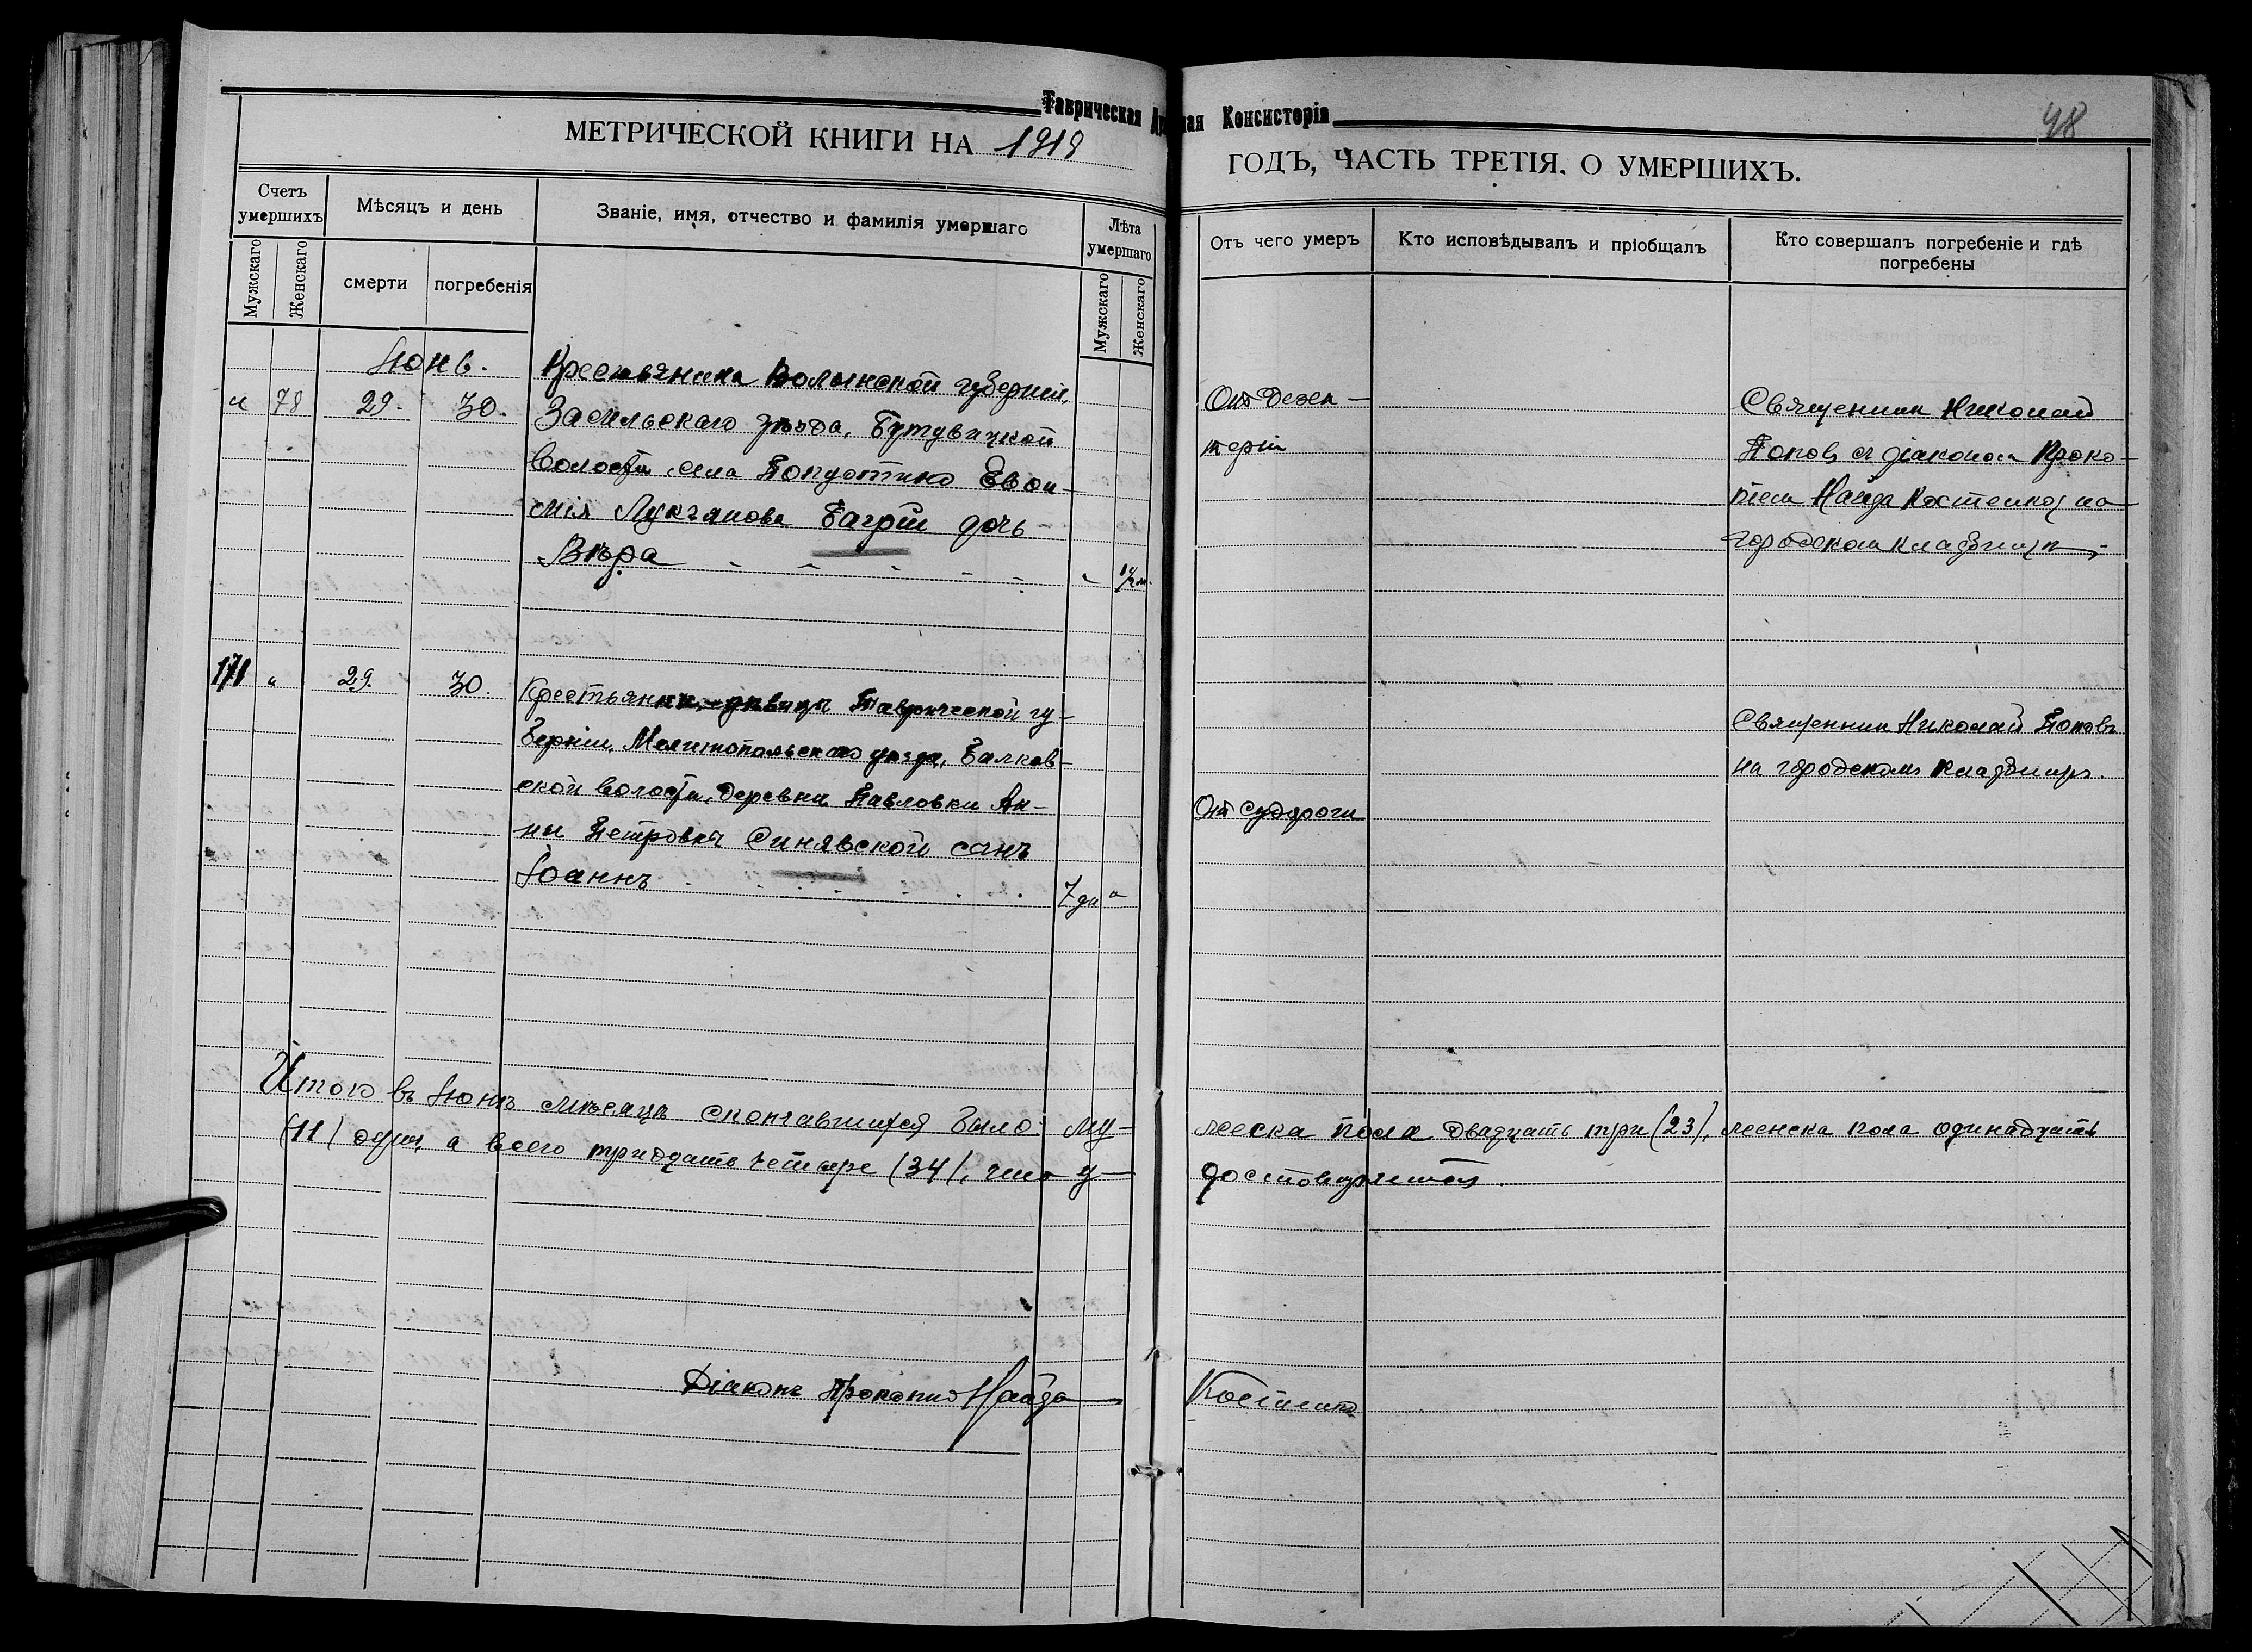 Таврическая Духовная Консисторія
48
МЕТРИЧЕСКОЙ КНИГИ НА 1919 ГОДЪ, ЧАСТЬ ТРЕТІЯ. О УМЕРШИХЪ.
Счетъ умершихъ
Мужскаго
Женскаго
Мѣсяцъ и день
смерти
погребенія
Званіе, имя, отчество и фамилія умершаго
Лѣта умершаго
Мужскаго
Женскаго
Отъ чего умеръ
Кто исповѣдывалъ и пріобщалъ
Кто совершалъ погребеніе и гдѣ
погребены
Іюнь.
„ 78 29. 30.
Крестьянина Волынской губерніи,
Заслвльскаго уѣзда,
волости села Евѳи-
мія Лукъянова Багрій дочь
Вѣра
„ 1/2 м.
От дезен-
теріи
Священник Николай
Попов съ діаконом Проко-
піем Найда Костенко, на
городском кладбищѣ.
171 „ 29. 30.
Крестьянки, дѣвицы Таврической гу-
берніи, Мелитопольскаго уѣзда, Балков-
ской волости, деревни Павловки Ан-
ны Петровой Синявской сынъ
Іоаннъ
7 дн „
От судороги
Священник Николай Поповъ
на городскомъ кладбищѣ.
Итого въ Іюнѣ мѣсяцѣ скончавшихся было: му- жеска пола двадцать три (23), женска пола одинадцать
(11) душ, а всего тридцать четыре (34), что у- достовѣряется.
Діаконъ Прокопий Найда Костенко